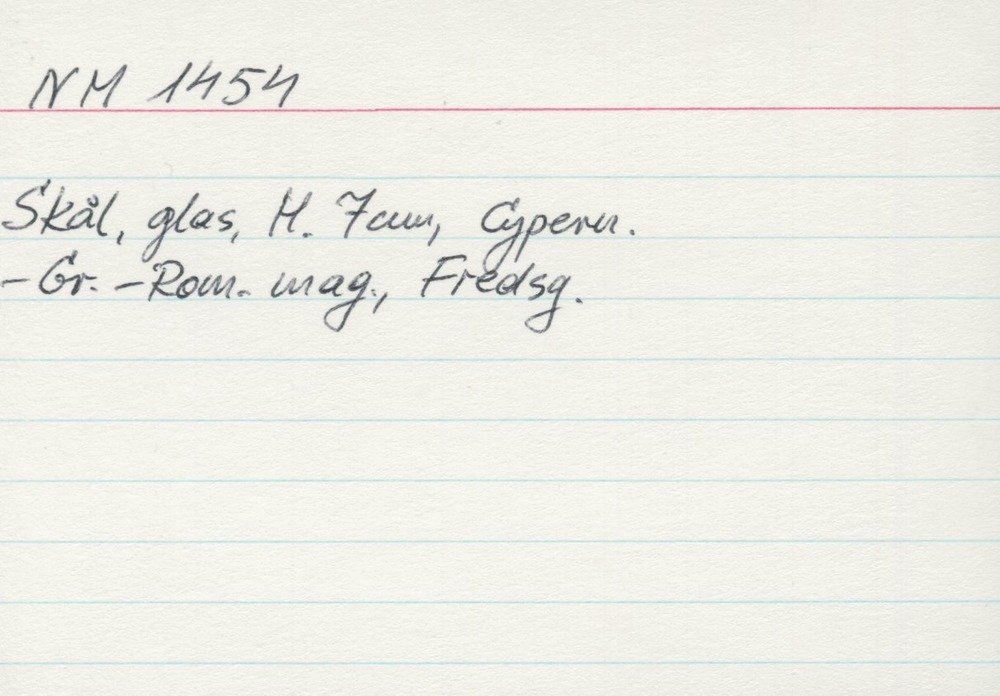 NM 1454
Skål, glas, H. 7cm, Cypern.
-Gr.-Rom. mag., Fredsg.